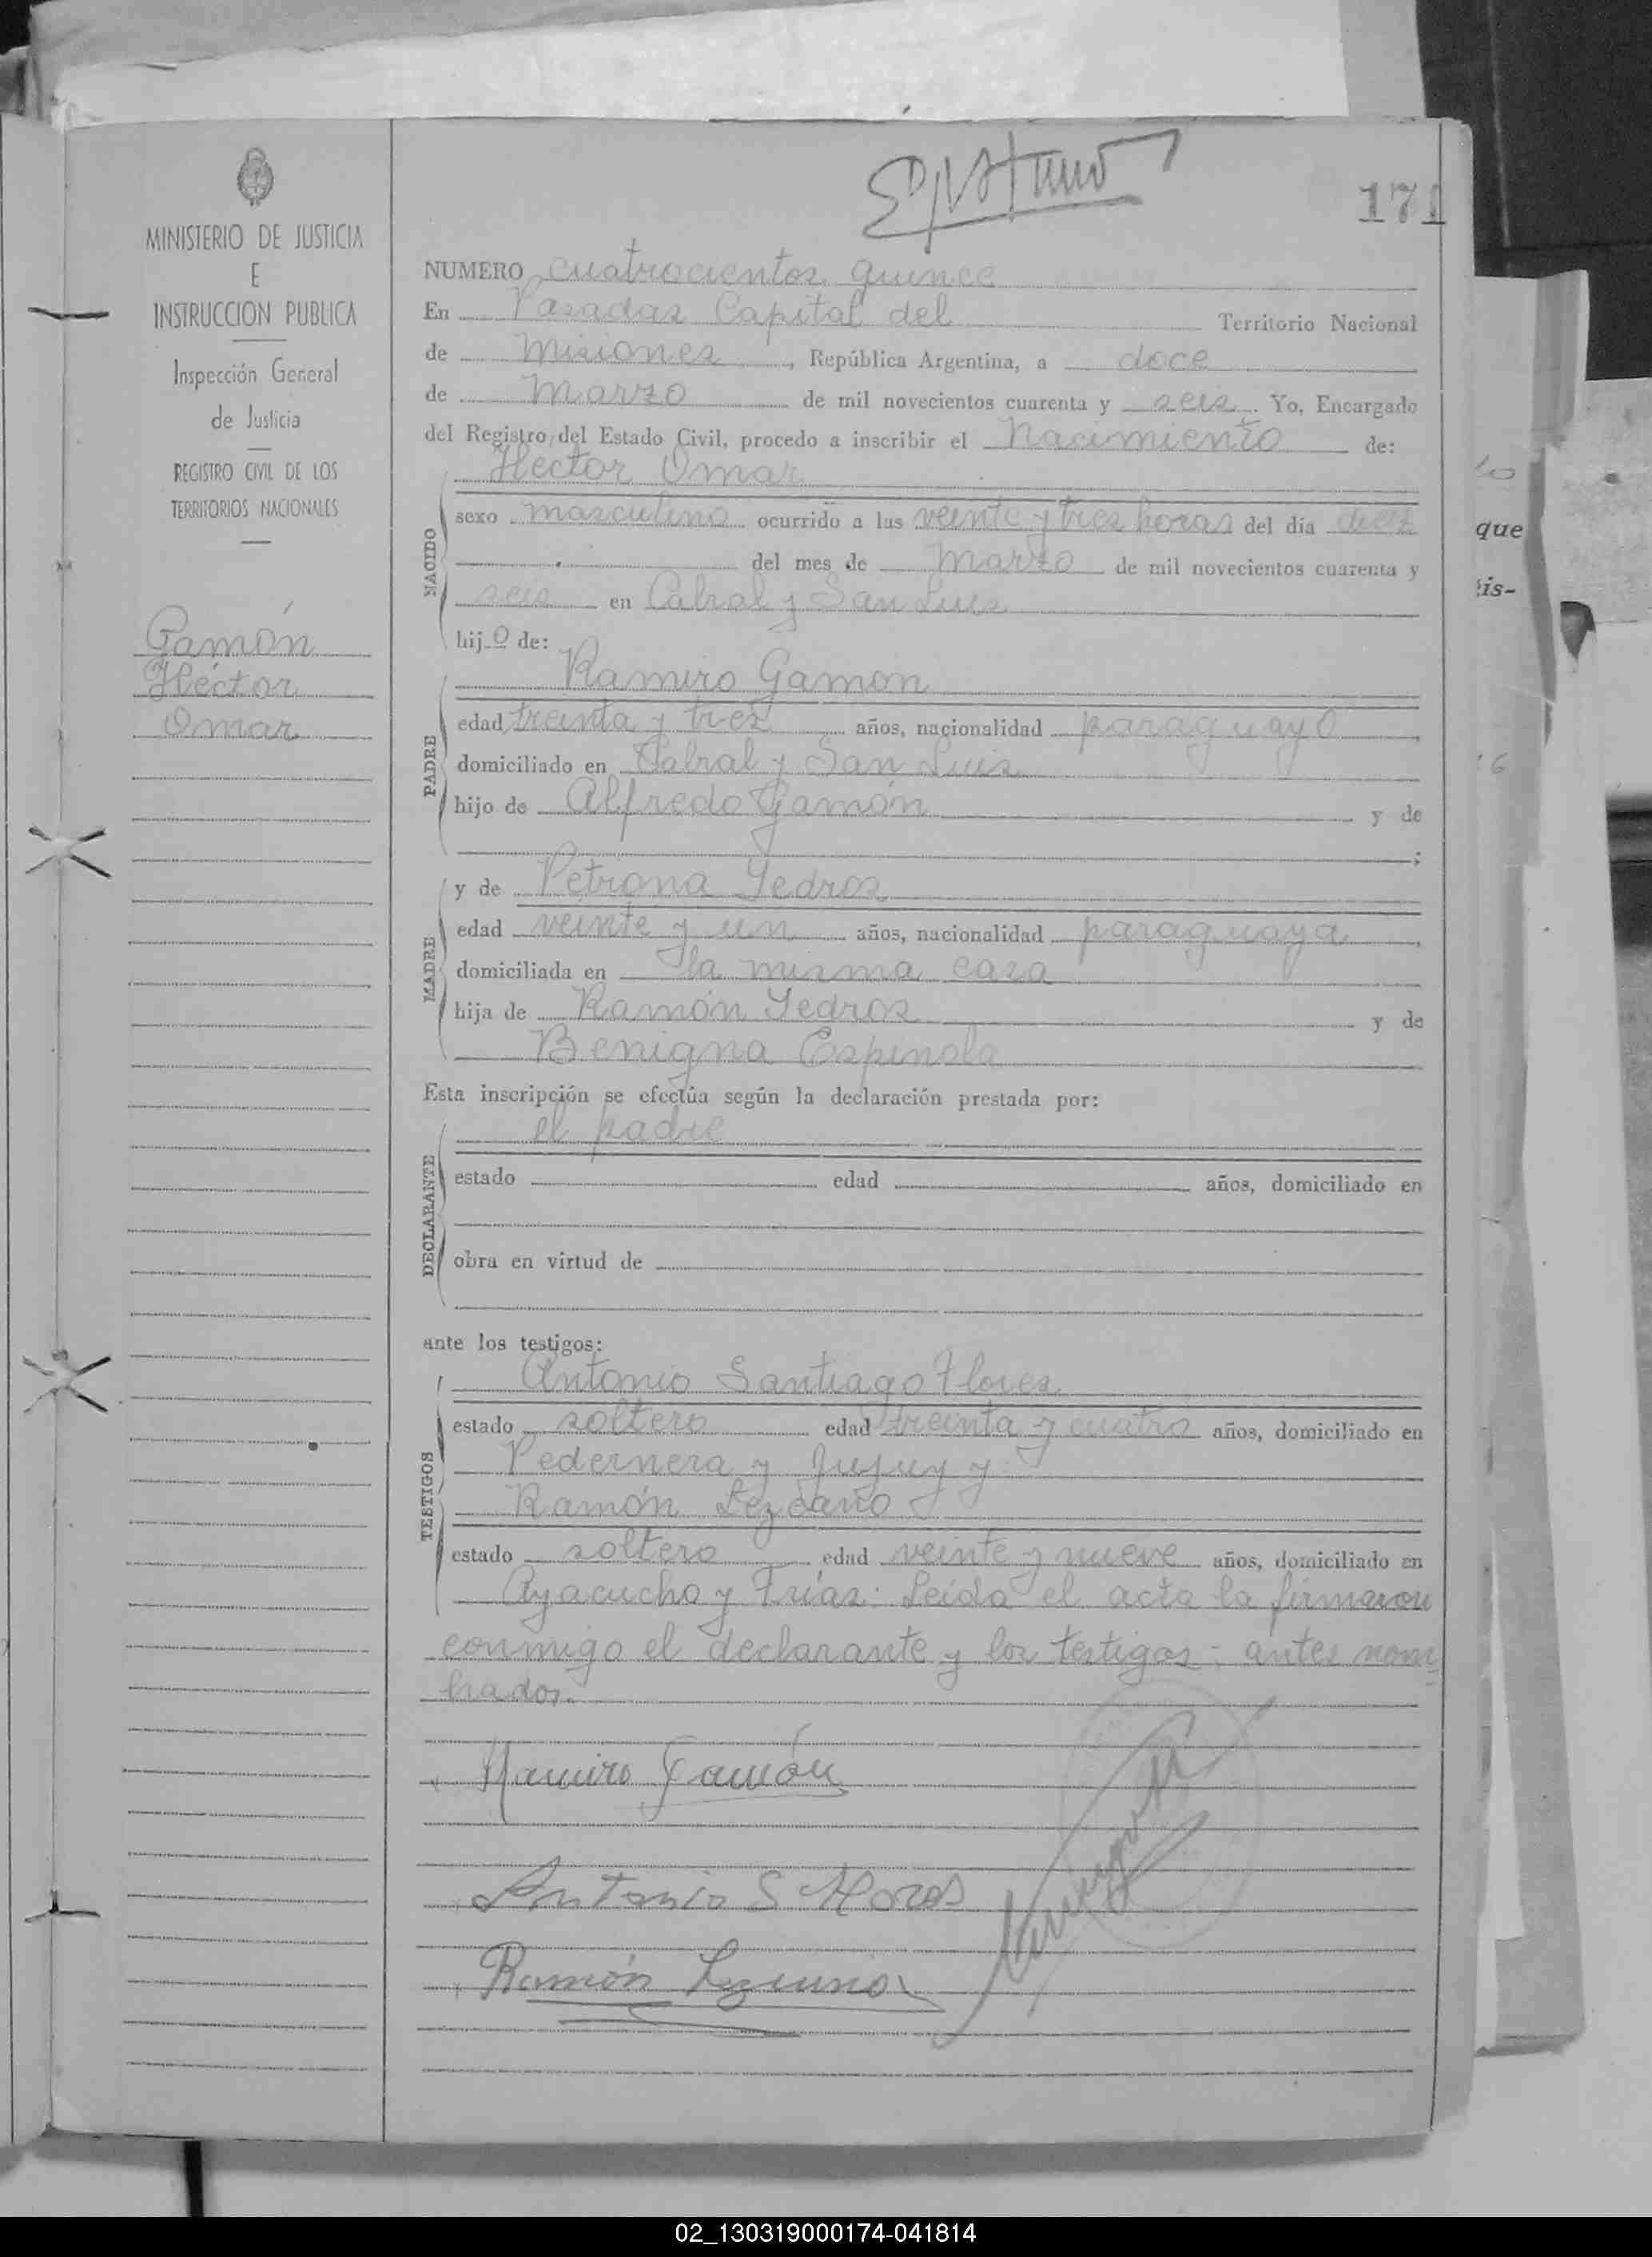 171
MINISTERIO DE JUSTICIA
E
INSTRUCCION PUBLICA
Inspección General
de Justicia
REGISTRO CIVIL DE LOS
TERRITORIOS NACIONALES
Gamón
Héctor
Omar
NUMERO cuatrocientos quince
En Posadas Capital del Territorio Nacional
de Misiones, República Argentina, a doce
de Marzo de mil novecientos cuarenta y seis. Yo, Encargado
del Registro del Estado Civil, procedo a inscribir el Nacimiento de:
Hector Omar
NACIDO
sexo masculino ocurrido a las veinte y tres horas del día diez
del mes de Marzo de mil novecientos cuarenta y
seis en Cabral y San Luis
hijo de:
Ramiro Gamon
PADRE
edad treinta y tres años, nacionalidad paraguayo
domiciliado en Cabral y San Luis
hijo de Alfredo Gamón y de
;
y de Petrona Ledros
MADRE
edad veinte y un años, nacionalidad paraguaya
domiciliada en la misma casa
hija de Ramón Ledros y de
Benigna Espinola
Esta inscripción se efectúa según la declaración prestada por:
el padre
DECLARANTE
estado edad años, domiciliado en
obra en virtud de
ante los testigos:
Antonio Santiago Flores
TESTIGOS
estado soltero edad treinta y cuatro años, domiciliado en
Pedernera y Jujuy y
Ramón Lezcano
estado soltero edad veinte y nueve años, domiciliado en
Ayacucho y Frías: Leída el acta la firmaron
conmigo el declarante y los testigos antes nom
brados.
Ramiro Gamón
Antonio S Flores
Ramón Lezcano
que
tis-
02_130319000174-041814